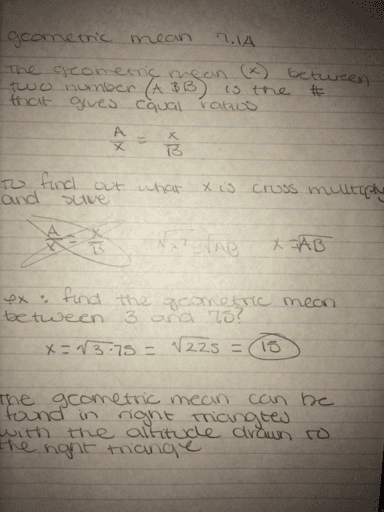 geometric mean 7.1A
The geometric mean (x) between
two number (A & B) is the #
that gives equal ratios
A/X = X/B
To find out what x is cross multiply
and solve
A/X = X/B √x² = √AB x = √AB
ex: find the geometric mean
between 3 and 75?
x = √3·75 = √225 = 15
The geometric mean can be
found in right triangles
with the altitude drawn to
the right triangle